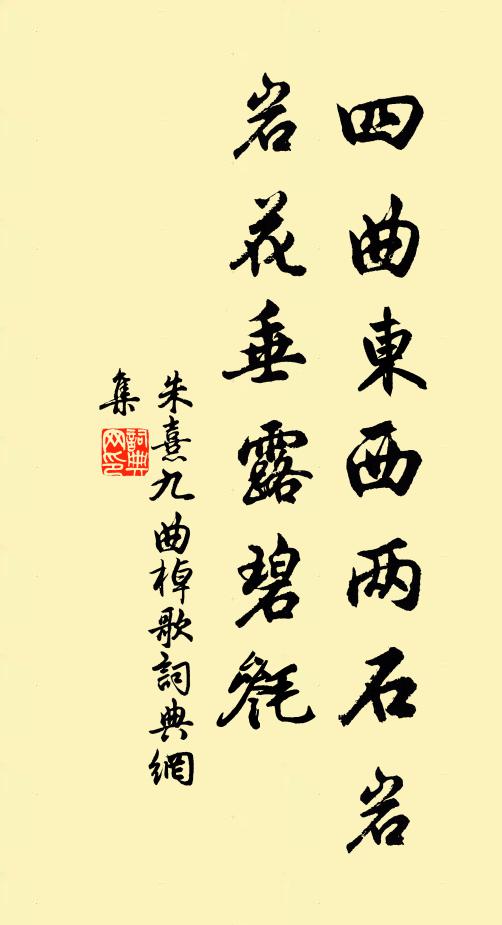 四曲東西两石岩
岩花垂露碧㲯
朱熹九曲棹歌詞典網
集
詞典网印